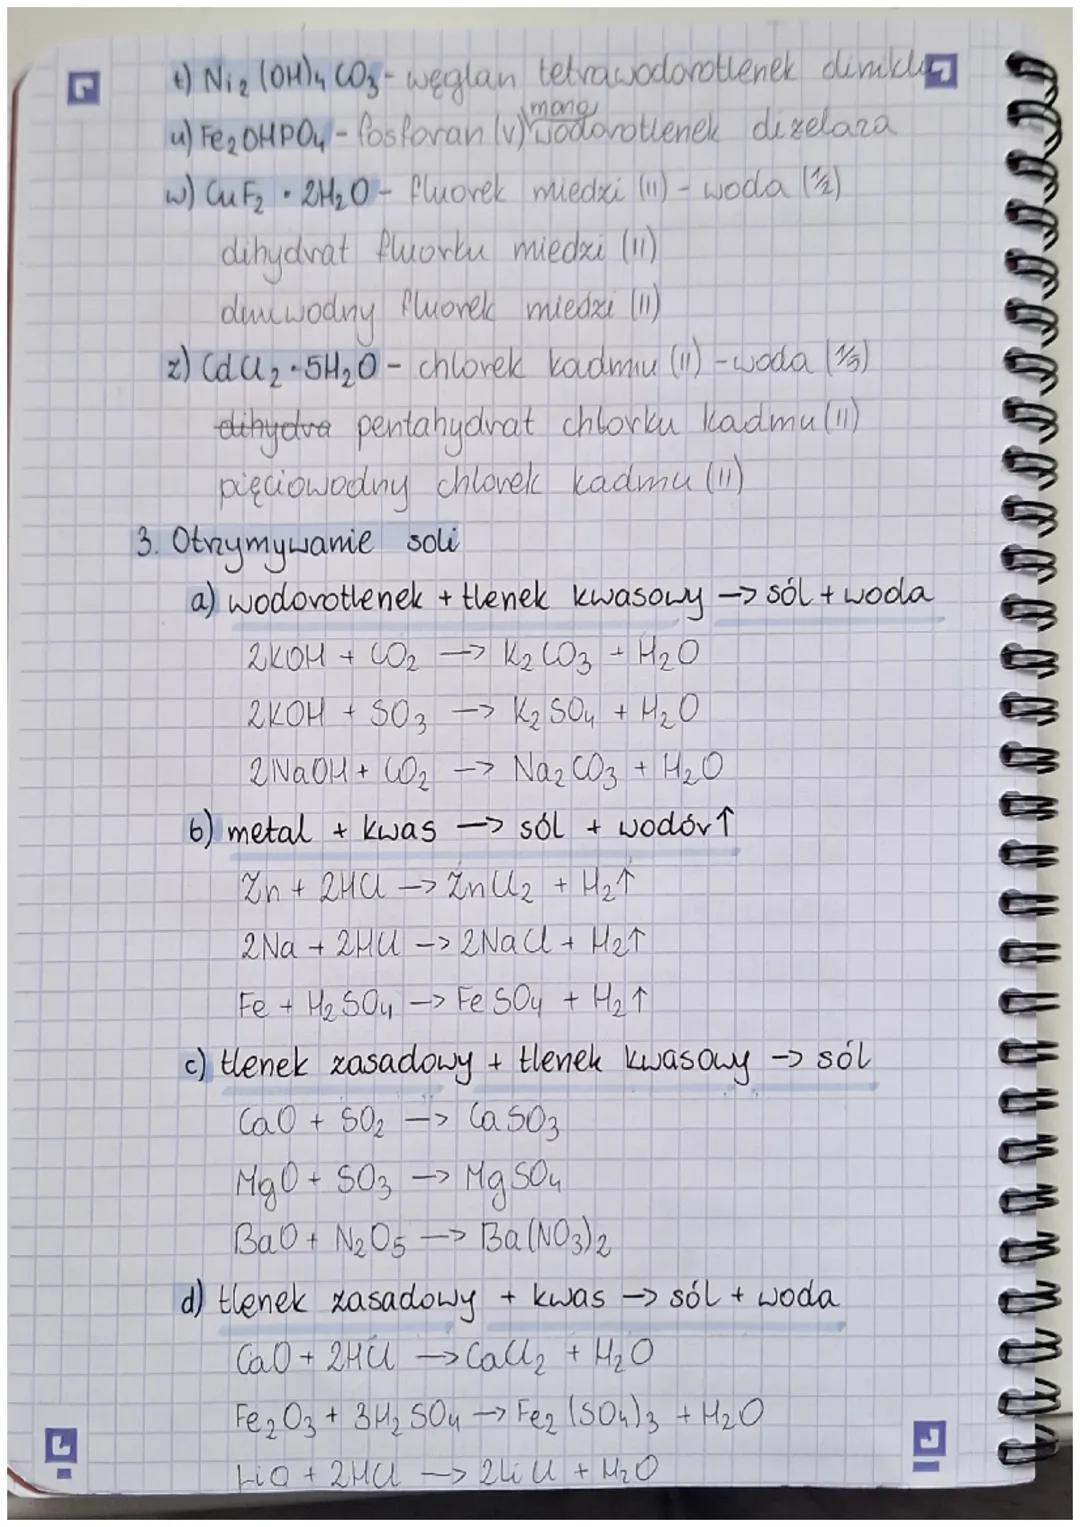 t) Ni₂(OH)₄CO₃ - węglan tetrawodorotlenek diniklu
u) Fe₂OHPO₄ - fosforan (V) mono wodorotlenek dizelaza
w) CuF₂ · 2H₂O - fluorek miedzi (II) - woda (1/2)
dihydrat fluorku miedzi (II)
duwuwodny fluorek miedzi (II)
z) CdCl₂ · 5H₂O - chlorek kadmu (II) - woda (1/5)
dihydra pentahydrat chlorku kadmu (II)
pięciowodny chlorek kadmu (II)
3. Otrzymywanie soli
a) wodorotlenek + tlenek kwasowy → sól + woda
2KOH + CO₂ → K₂CO₃ + H₂O
2KOH + SO₃ → K₂SO₄ + H₂O
2NaOH + CO₂ → Na₂CO₃ + H₂O
b) metal + kwas → sól + wodór↑
Zn + 2HCl → ZnCl₂ + H₂↑
2Na + 2HCl → 2NaCl + H₂↑
Fe + H₂SO₄ → FeSO₄ + H₂↑
c) tlenek zasadowy + tlenek kwasowy → sól
CaO + SO₂ → CaSO₃
MgO + SO₃ → MgSO₄
BaO + N₂O₅ → Ba(NO₃)₂
d) tlenek zasadowy + kwas → sól + woda
CaO + 2HCl → CaCl₂ + H₂O
Fe₂O₃ + 3H₂SO₄ → Fe₂(SO₄)₃ + H₂O
LiO + 2HCl → 2LiCl + H₂O